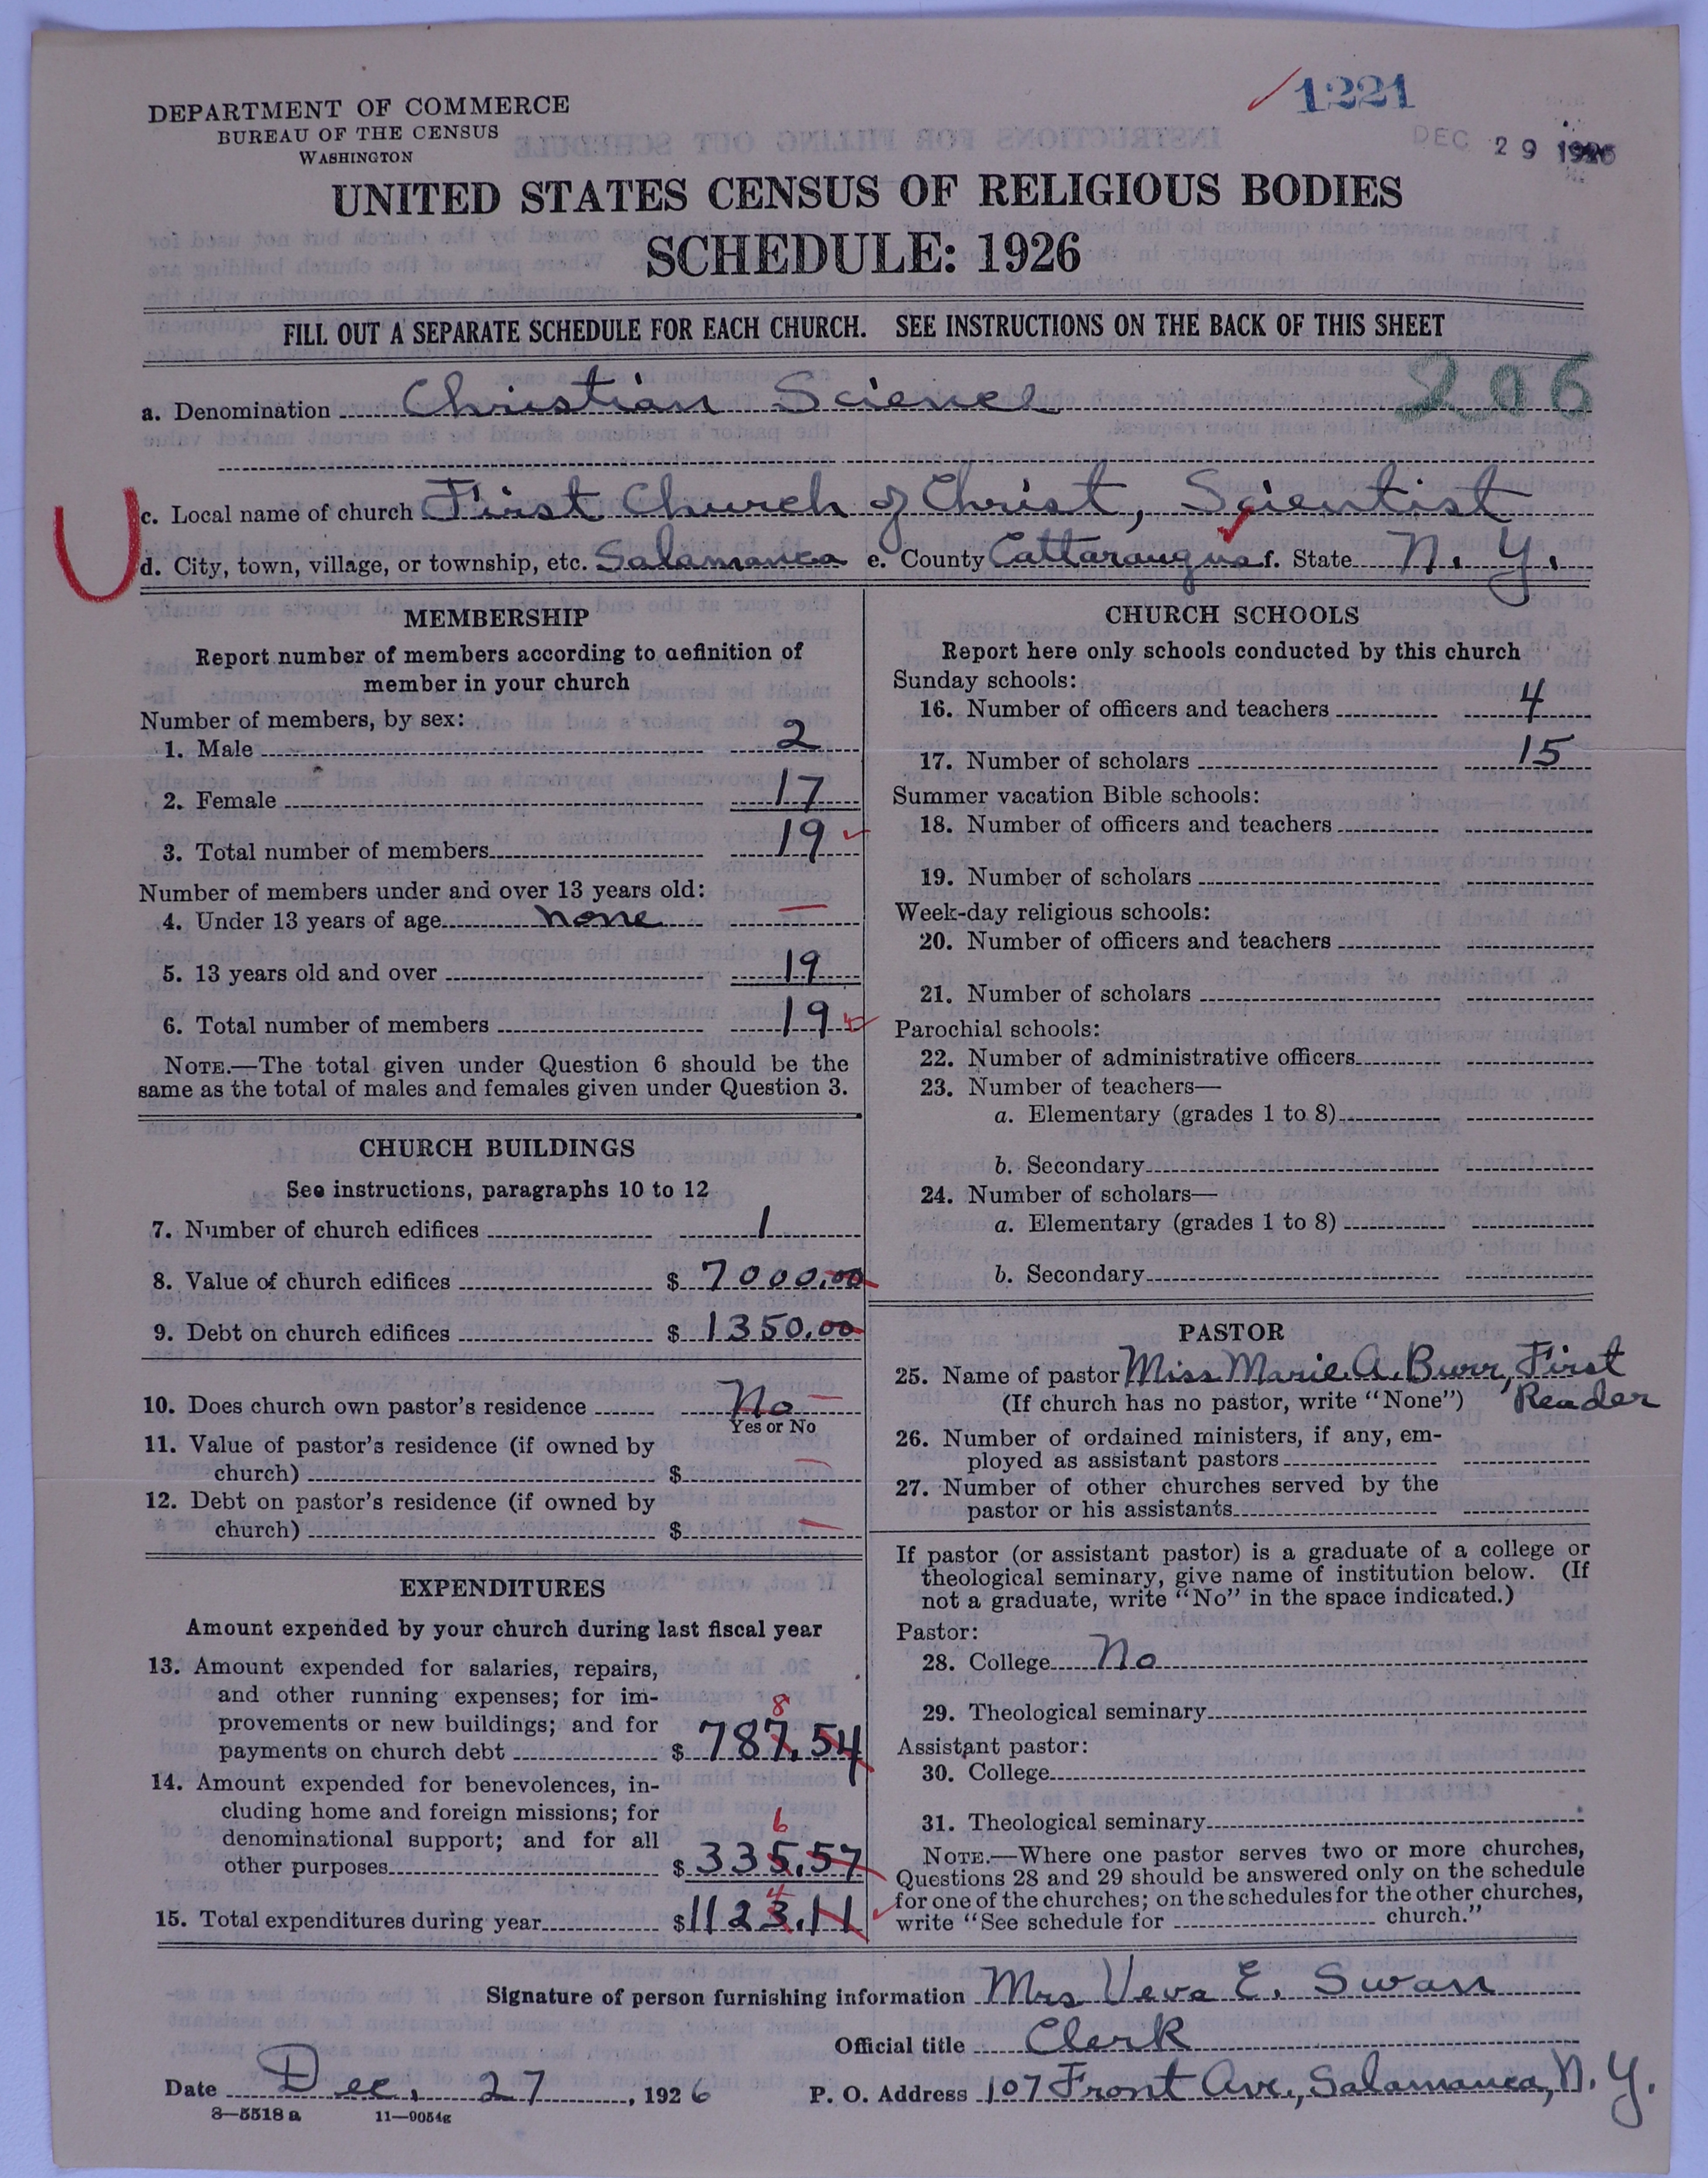 1221
DEC 29 1926
DEPARTMENT OF COMMERCE
BUREAU OF THE CENSUS
WASHINGTON
UNITED STATES CENSUS OF RELIGIOUS BODIES
SCHEDULE: 1926
FILL OUT A SEPARATE SCHEDULE FOR EACH CHURCH. SEE INSTRUCTIONS ON THE BACK OF THIS SHEET
206
a. Denomination Christian Science
c. Local name of church First Church of Christ, Scientist
d. City, town, village, or township, etc. Salamanca e. County Cattaraugus f. State N. Y.
MEMBERSHIP
Report number of members according to definition of
member in your church
Number of members, by sex:
1. Male 2
2. Female 17
3. Total number of members 19
Number of members under and over 13 years old:
4. Under 13 years of age none
5. 13 years old and over 19
6. Total number of members 19
NOTE.—The total given under Question 6 should be the
same as the total of males and females given under Question 3.
CHURCH BUILDINGS
See instructions, paragraphs 10 to 12
7. Number of church edifices 1
8. Value of church edifices $ 7000.00
9. Debt on church edifices $ 1350.00
10. Does church own pastor's residence No
Yes or No
11. Value of pastor's residence (if owned by
church) $
12. Debt on pastor's residence (if owned by
church) $
EXPENDITURES
Amount expended by your church during last fiscal year
13. Amount expended for salaries, repairs,
and other running expenses; for im-
8
provements or new buildings; and for
payments on church debt $ 787.54
14. Amount expended for benevolences, in-
cluding home and foreign missions; for
6
denominational support; and for all
other purposes $ 335.57
4
15. Total expenditures during year $1123.11
CHURCH SCHOOLS
Report here only schools conducted by this church
Sunday schools:
16. Number of officers and teachers 4
17. Number of scholars 15
Summer vacation Bible schools:
18. Number of officers and teachers
19. Number of scholars
Week-day religious schools:
20. Number of officers and teachers
21. Number of scholars
Parochial schools:
22. Number of administrative officers
23. Number of teachers—
a. Elementary (grades 1 to 8)
b. Secondary
24. Number of scholars—
a. Elementary (grades 1 to 8)
b. Secondary
PASTOR
25. Name of pastor Miss Marie A. Burr, First
(If church has no pastor, write "None") Reader
26. Number of ordained ministers, if any, em-
ployed as assistant pastors
27. Number of other churches served by the
pastor or his assistants
If pastor (or assistant pastor) is a graduate of a college or
theological seminary, give name of institution below. (If
not a graduate, write "No" in the space indicated.)
Pastor:
28. College No
29. Theological seminary
Assistant pastor:
30. College
31. Theological seminary
NOTE.—Where one pastor serves two or more churches,
Questions 28 and 29 should be answered only on the schedule
for one of the churches; on the schedules for the other churches,
write "See schedule for church."
Signature of person furnishing information Mrs Veva E. Swan
Official title Clerk
Date Dec. 27, 1926 P. O. Address 107 Front Ave., Salamanca, N. Y.
8—5518 a 11—9054g